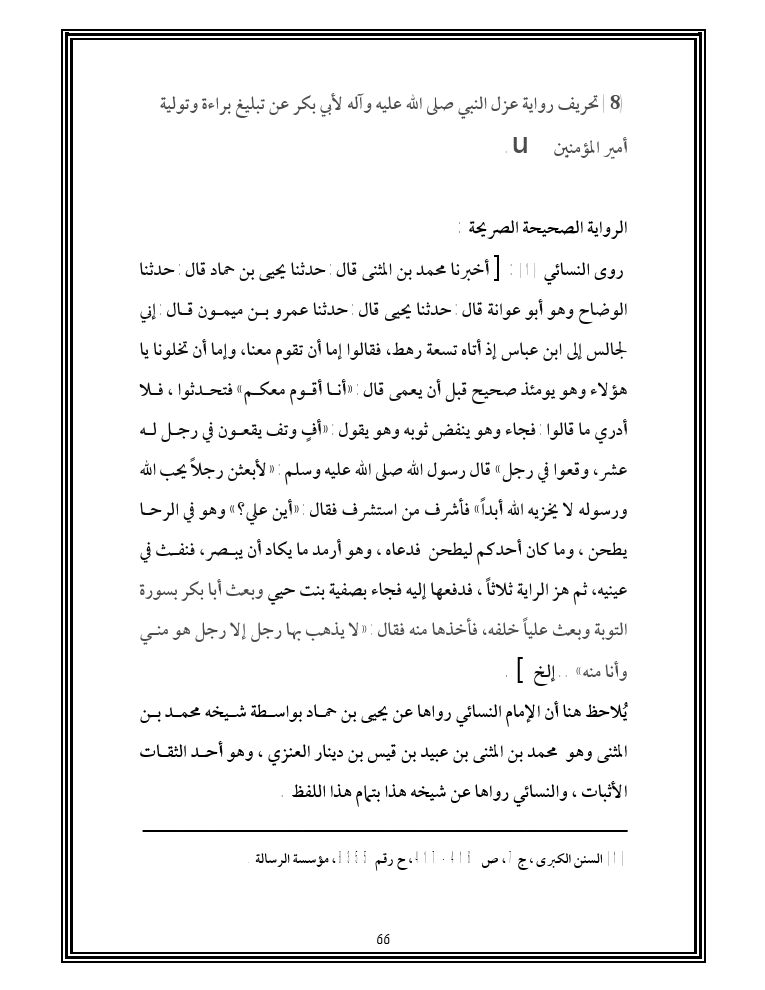 8| تحريف رواية عزل النبي صلى الله عليه وآله لأبي بكر عن تبليغ براءة وتولية
أمير المؤمنين u .
الرواية الصحيحة الصريحة :
روى النسائي : [ أخبرنا محمد بن المثنى قال : حدثنا يحيى بن حماد قال : حدثنا
الوضاح وهو أبو عوانة قال : حدثنا يحيى قال : حدثنا عمرو بن ميمون قال : إني
لجالس إلى ابن عباس إذ أتاه تسعة رهط، فقالوا إما أن تقوم معنا، وإما أن تخلونا يا
هؤلاء وهو يومئذ صحيح قبل أن يعمى قال : «أنا أقوم معكم» فتحدثوا ، فلا
أدري ما قالوا : فجاء وهو ينفض ثوبه وهو يقول : «أفٍ وتف يقعون في رجل له
عشر، وقعوا في رجل» قال رسول الله صلى الله عليه وسلم : «لأبعثن رجلاً يحب الله
ورسوله لا يخزيه الله أبداً» فأشرف من استشرف فقال : «أين علي؟» وهو في الرحا
يطحن ، وما كان أحدكم ليطحن فدعاه ، وهو أرمد ما يكاد أن يبصر، فنفث في
عينيه، ثم هز الراية ثلاثاً ، فدفعها إليه فجاء بصفية بنت حيي وبعث أبا بكر بسورة
التوبة وبعث علياً خلفه، فأخذها منه فقال : «لا يذهب بها رجل إلا رجل هو مني
وأنا منه» .. إلخ ] .
يُلاحظ هنا أن الإمام النسائي رواها عن يحيى بن حماد بواسطة شيخه محمد بن
المثنى وهو محمد بن المثنى بن عبيد بن قيس بن دينار العنزي ، وهو أحد الثقات
الأثبات ، والنسائي رواها عن شيخه هذا بتمام هذا اللفظ .
السنن الكبرى ، ج ، ص ، ح رقم ، مؤسسة الرسالة .
66